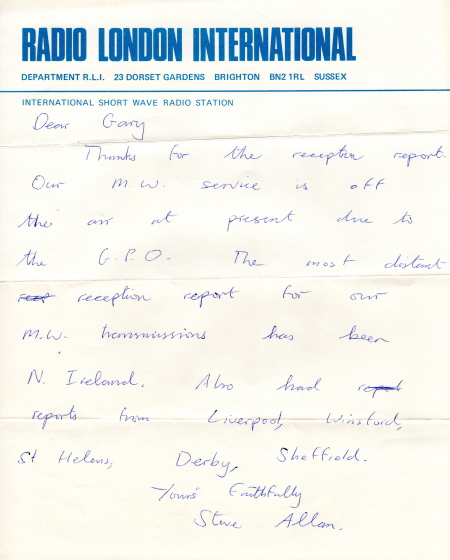 RADIO LONDON INTERNATIONAL
DEPARTMENT R.L.I. 23 DORSET GARDENS BRIGHTON BN2 1RL SUSSEX
INTERNATIONAL SHORT WAVE RADIO STATION
Dear Gary
Thanks for the reception report.
Our M.W. service is off
the air at present due to
the G.P.O. The most distant
reception report for our
M.W. transmissions has been
N. Ireland. Also had
reports from Liverpool, Winsford,
St Helens, Derby, Sheffield.
Yours Faithfully
Steve Allan.